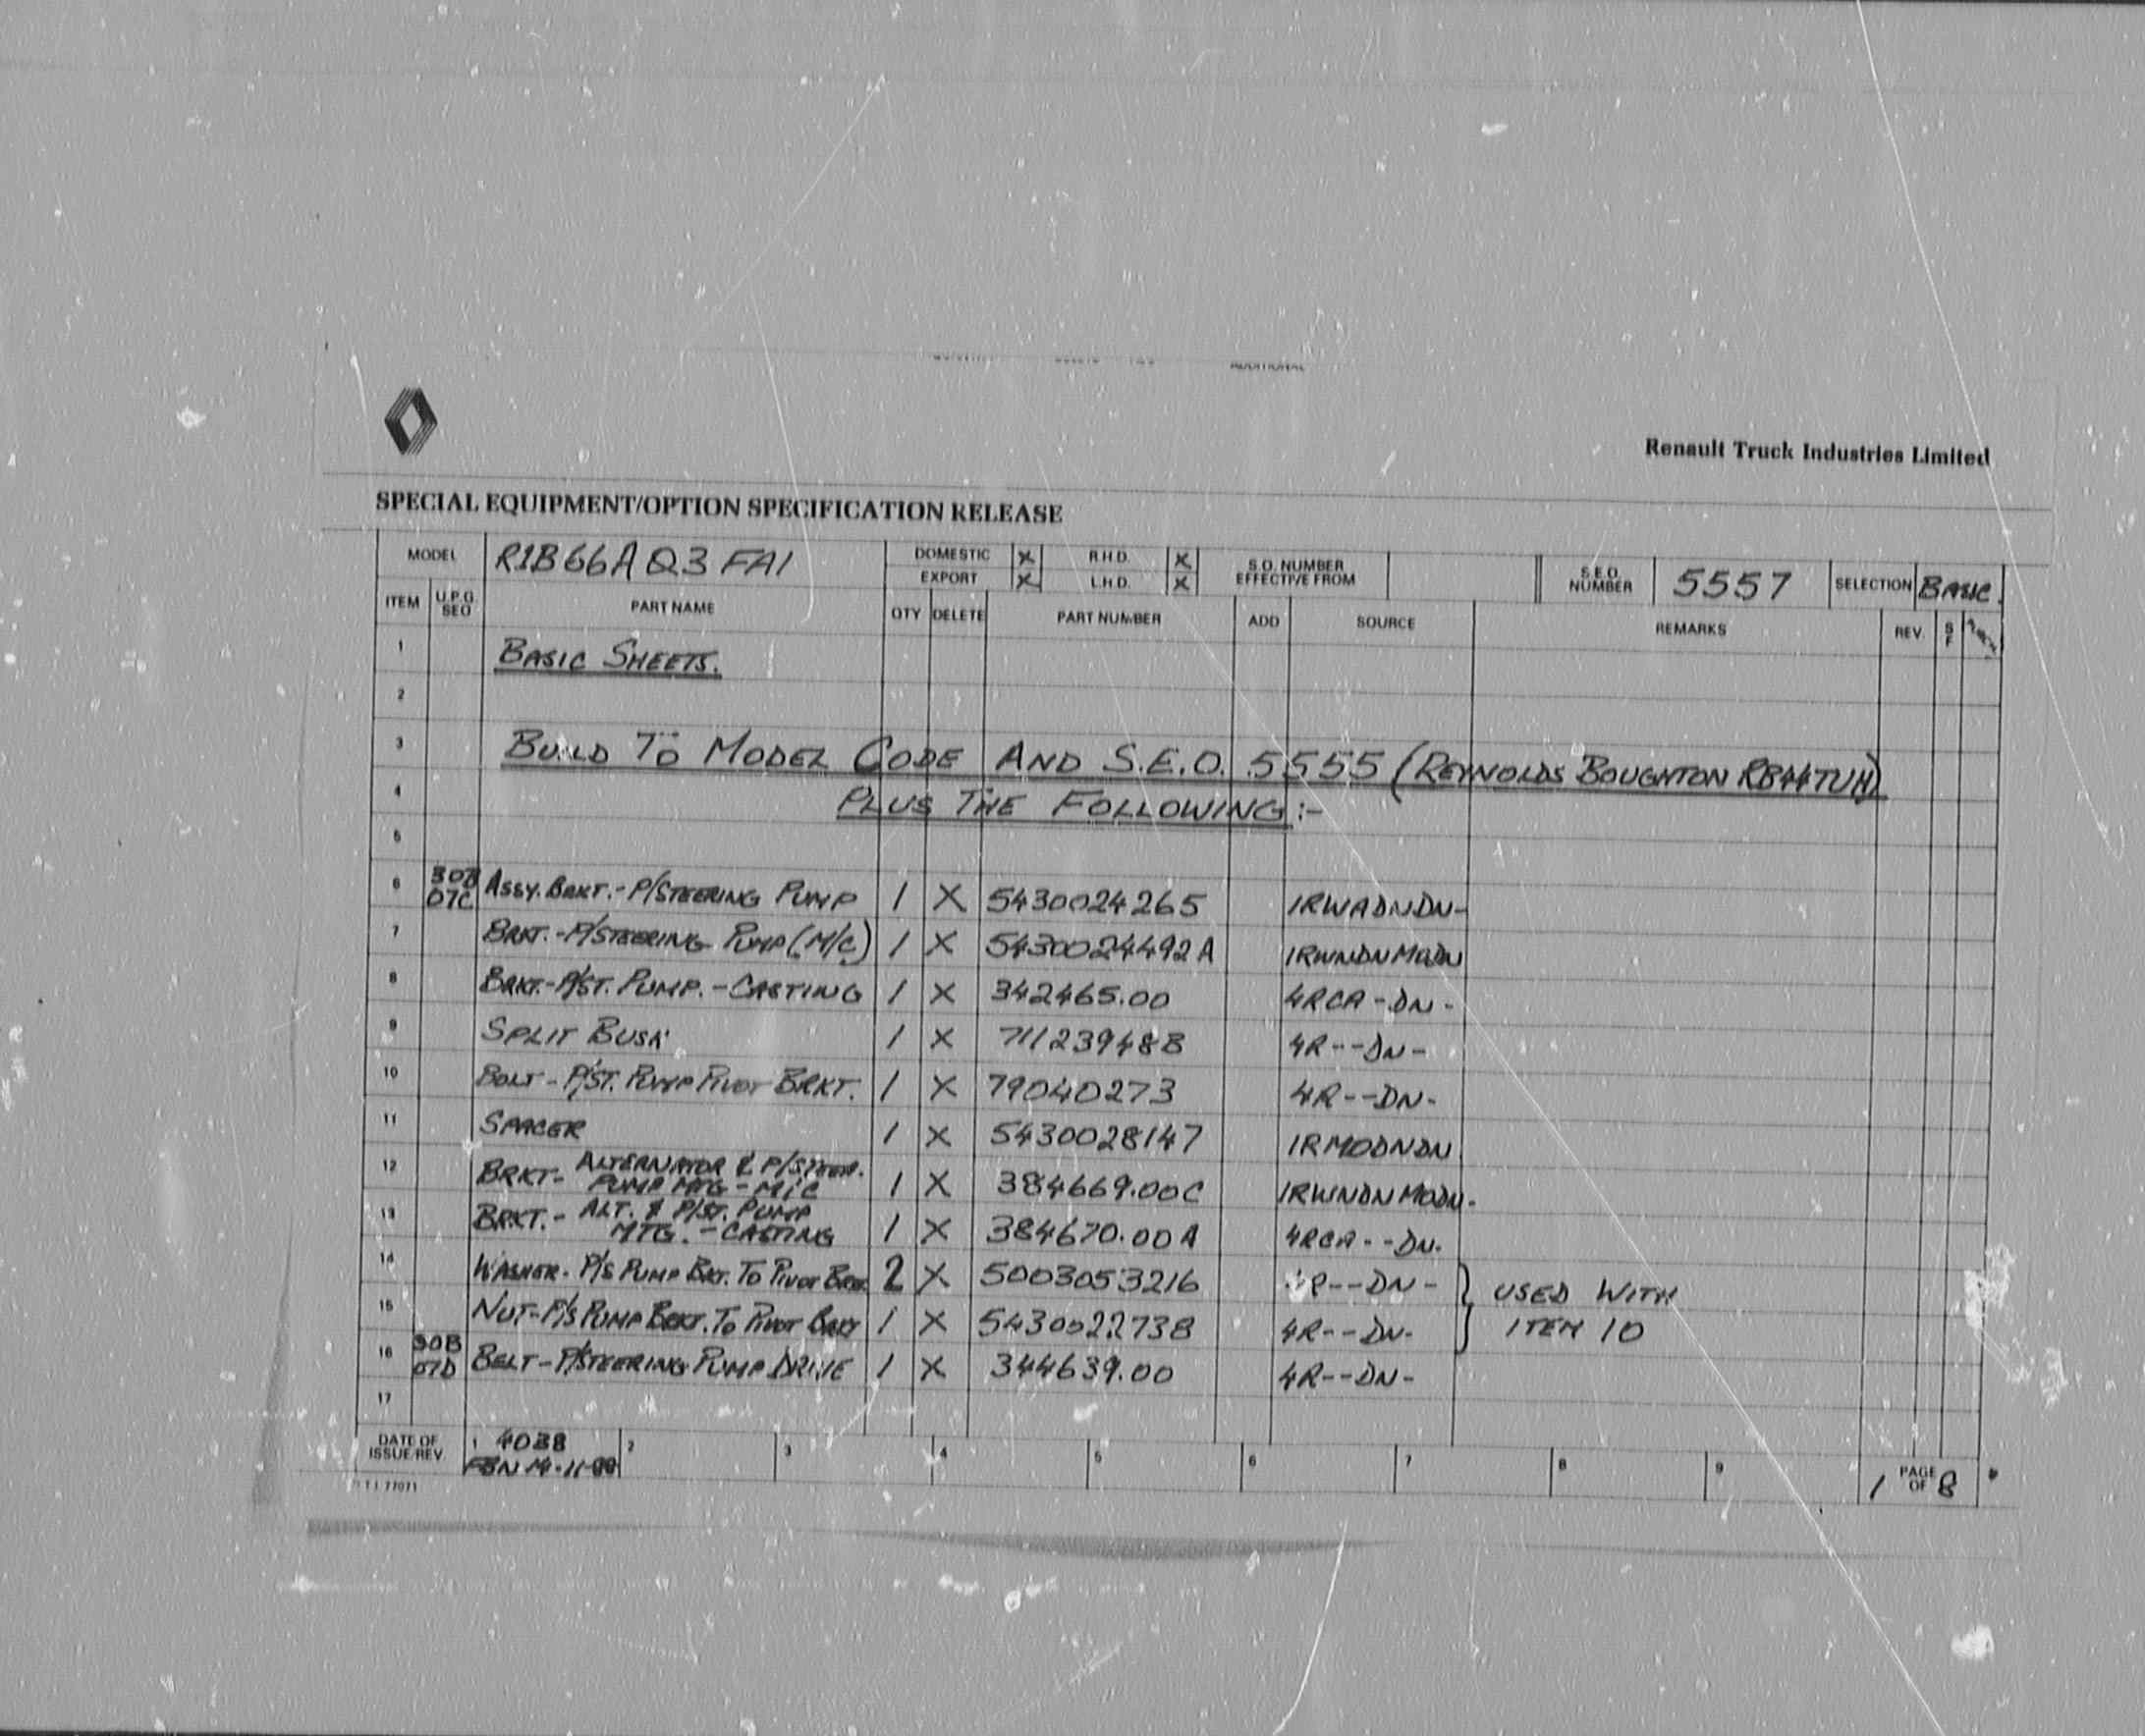 Renault Truck Industries Limited
SPECIAL EQUIPMENT/OPTION SPECIFICATION RELEASE
MODEL R1B66A Q3 FA1 DOMESTIC X R.H.D. X S.O. NUMBER EFFECTIVE FROM S.E.O. NUMBER 5557 SELECTION BASIC.
EXPORT X L.H.D. X
ITEM U.P.G. SEQ PART NAME QTY DELETE PART NUMBER ADD SOURCE REMARKS REV S F
1 BASIC SHEETS.
2
3 BUILD TO MODEL CODE AND S.E.O. 5555 (REYNOLDS BOUGHTON RB44TUH)
4 PLUS THE FOLLOWING:-
5
6 30B 07C ASSY. BRKT.-P/STEERING PUMP 1 X 5430024265 1RWADNDN-
7 BRKT.-P/STEERING PUMP (M/C) 1 X 5430024492A 1RWNDNMODN
8 BRKT-P/ST. PUMP.-CASTING 1 X 342465.00 4RCA-DN-
9 SPLIT BUSH 1 X 711239488 4R--DN-
10 BOLT-P/ST. PUMP PIVOT BRKT. 1 X 79040273 4R--DN-
11 SPACER 1 X 5430028147 1RMODNDN
12 BRKT- ALTERNATOR & P/STEER. PUMP MTG-M/C 1 X 384669.00C 1RWNDNMODN-
13 BRKT.- ALT. & P/ST. PUMP MTG.-CASTING 1 X 384670.00A 4RCA--DN-
14 WASHER-P/S PUMP BKT. TO PIVOT BRKT. 2 X 5003053216 4R--DN- } USED WITH
15 NUT-P/S PUMP BRKT. TO PIVOT BRKT 1 X 5430022738 4R--DN- } ITEM 10
16 30B 07D BELT-P/STEERING PUMP DRIVE 1 X 344639.00 4R--DN-
17
DATE OF ISSUE/REV. 1 4038 2 3 4 5 6 7 8 9 1 PAGE OF 8
77071